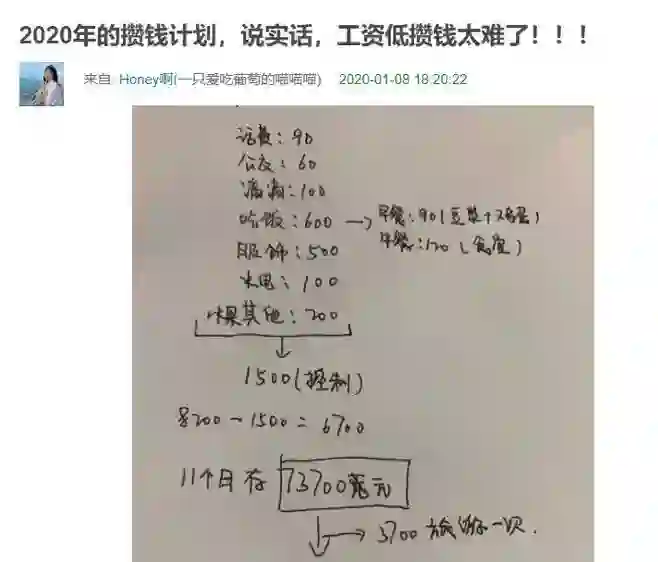 2020年的攒钱计划，说实话，工资低攒钱太难了！！！
来自: Honey啊(一只爱吃葡萄的喵喵喵) 2020-01-08 18:20:22
话费：90
公交：60
滴滴：100
吃饭：600 → 早餐：90(豆浆+鸡蛋)
午餐：120(食堂)
服饰：500
水电：100
水果其他：200
1500(控制)
8200-1500=6700
11个月存 73700
3700 旅游一次.